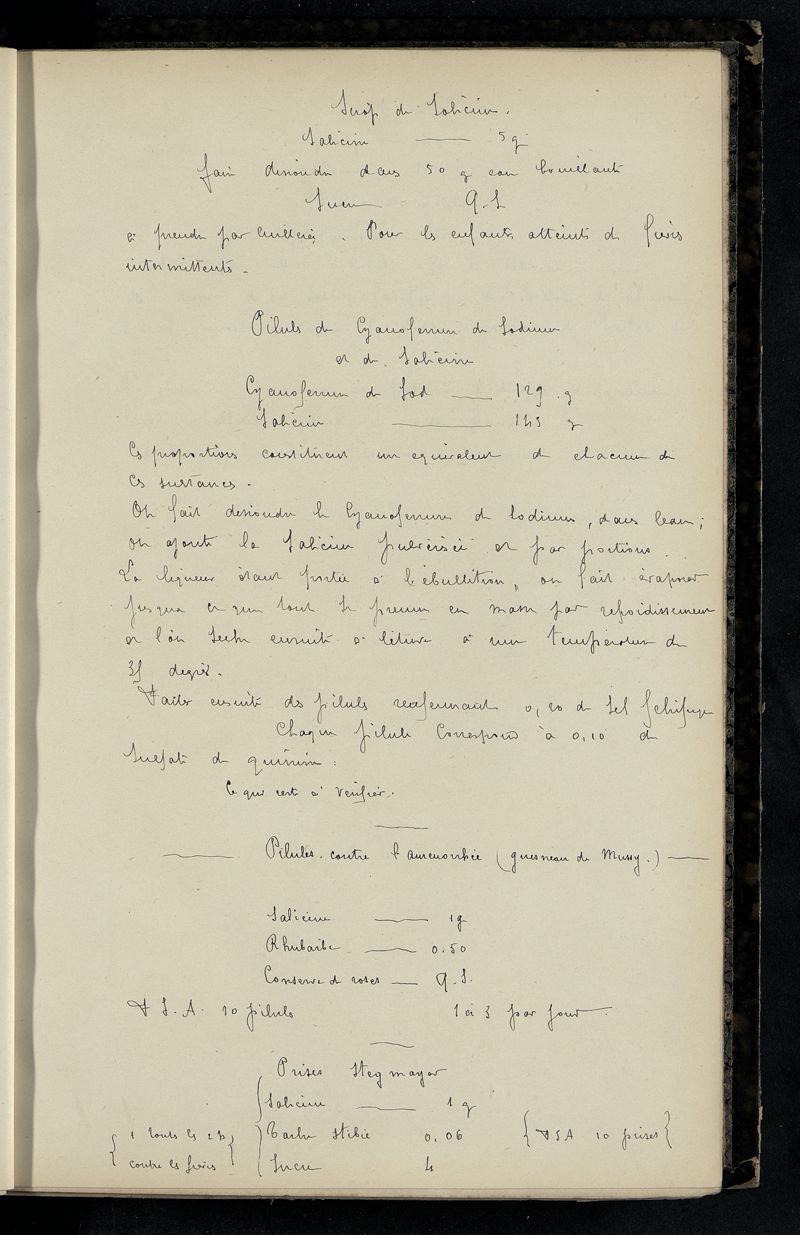 Sirop de Salicine.
Salicine —— 5 g
faire dissoudre dans 50 g eau bouillante
Sucre Q.S
à prendre par cuillerées. Pour les enfants atteints de fièvres
intermittents -
Pilules de Cyanoferrure de Sodium
et de Salicine
Cyanoferrure de Sod —— 129 g
Salicine —— 143 g
Ces proportions constituent un equivalent de chacune de
ces sustances.
On fait dissoudre le Cyanoferrure de Sodium, dans l'eau;
on ajoute la Salicine pulverisée et par portions.
La liqueur étant portée à l'ébullition, on fait évaporer
jusqua ce que tout se prenne en masse par refroidissement
et l'on seche ensuite à l'étuve à une température de
35 degrés.
Faites ensuite des pilules renfermant 0,20 de sel febrifuge
Chaque pilule Correspond à 0,10 de
Sulfate de quinine :
Ce qui reste à verifier.
—— Pilules contre l'amenorrhée (gueneau de Mussy.) ——
Salicine —— 1 g
Rhubarbe —— 0.50
Conserve de roses — Q.S.
F S.A. 10 pilules 1 à 3 par jour.
Prises Stegmayer
Salicine —— 1 g
{1 toutes les 2 h} Tartre stibié 0,06 {F S A 10 prises}
contre les fièvres Sucre 4